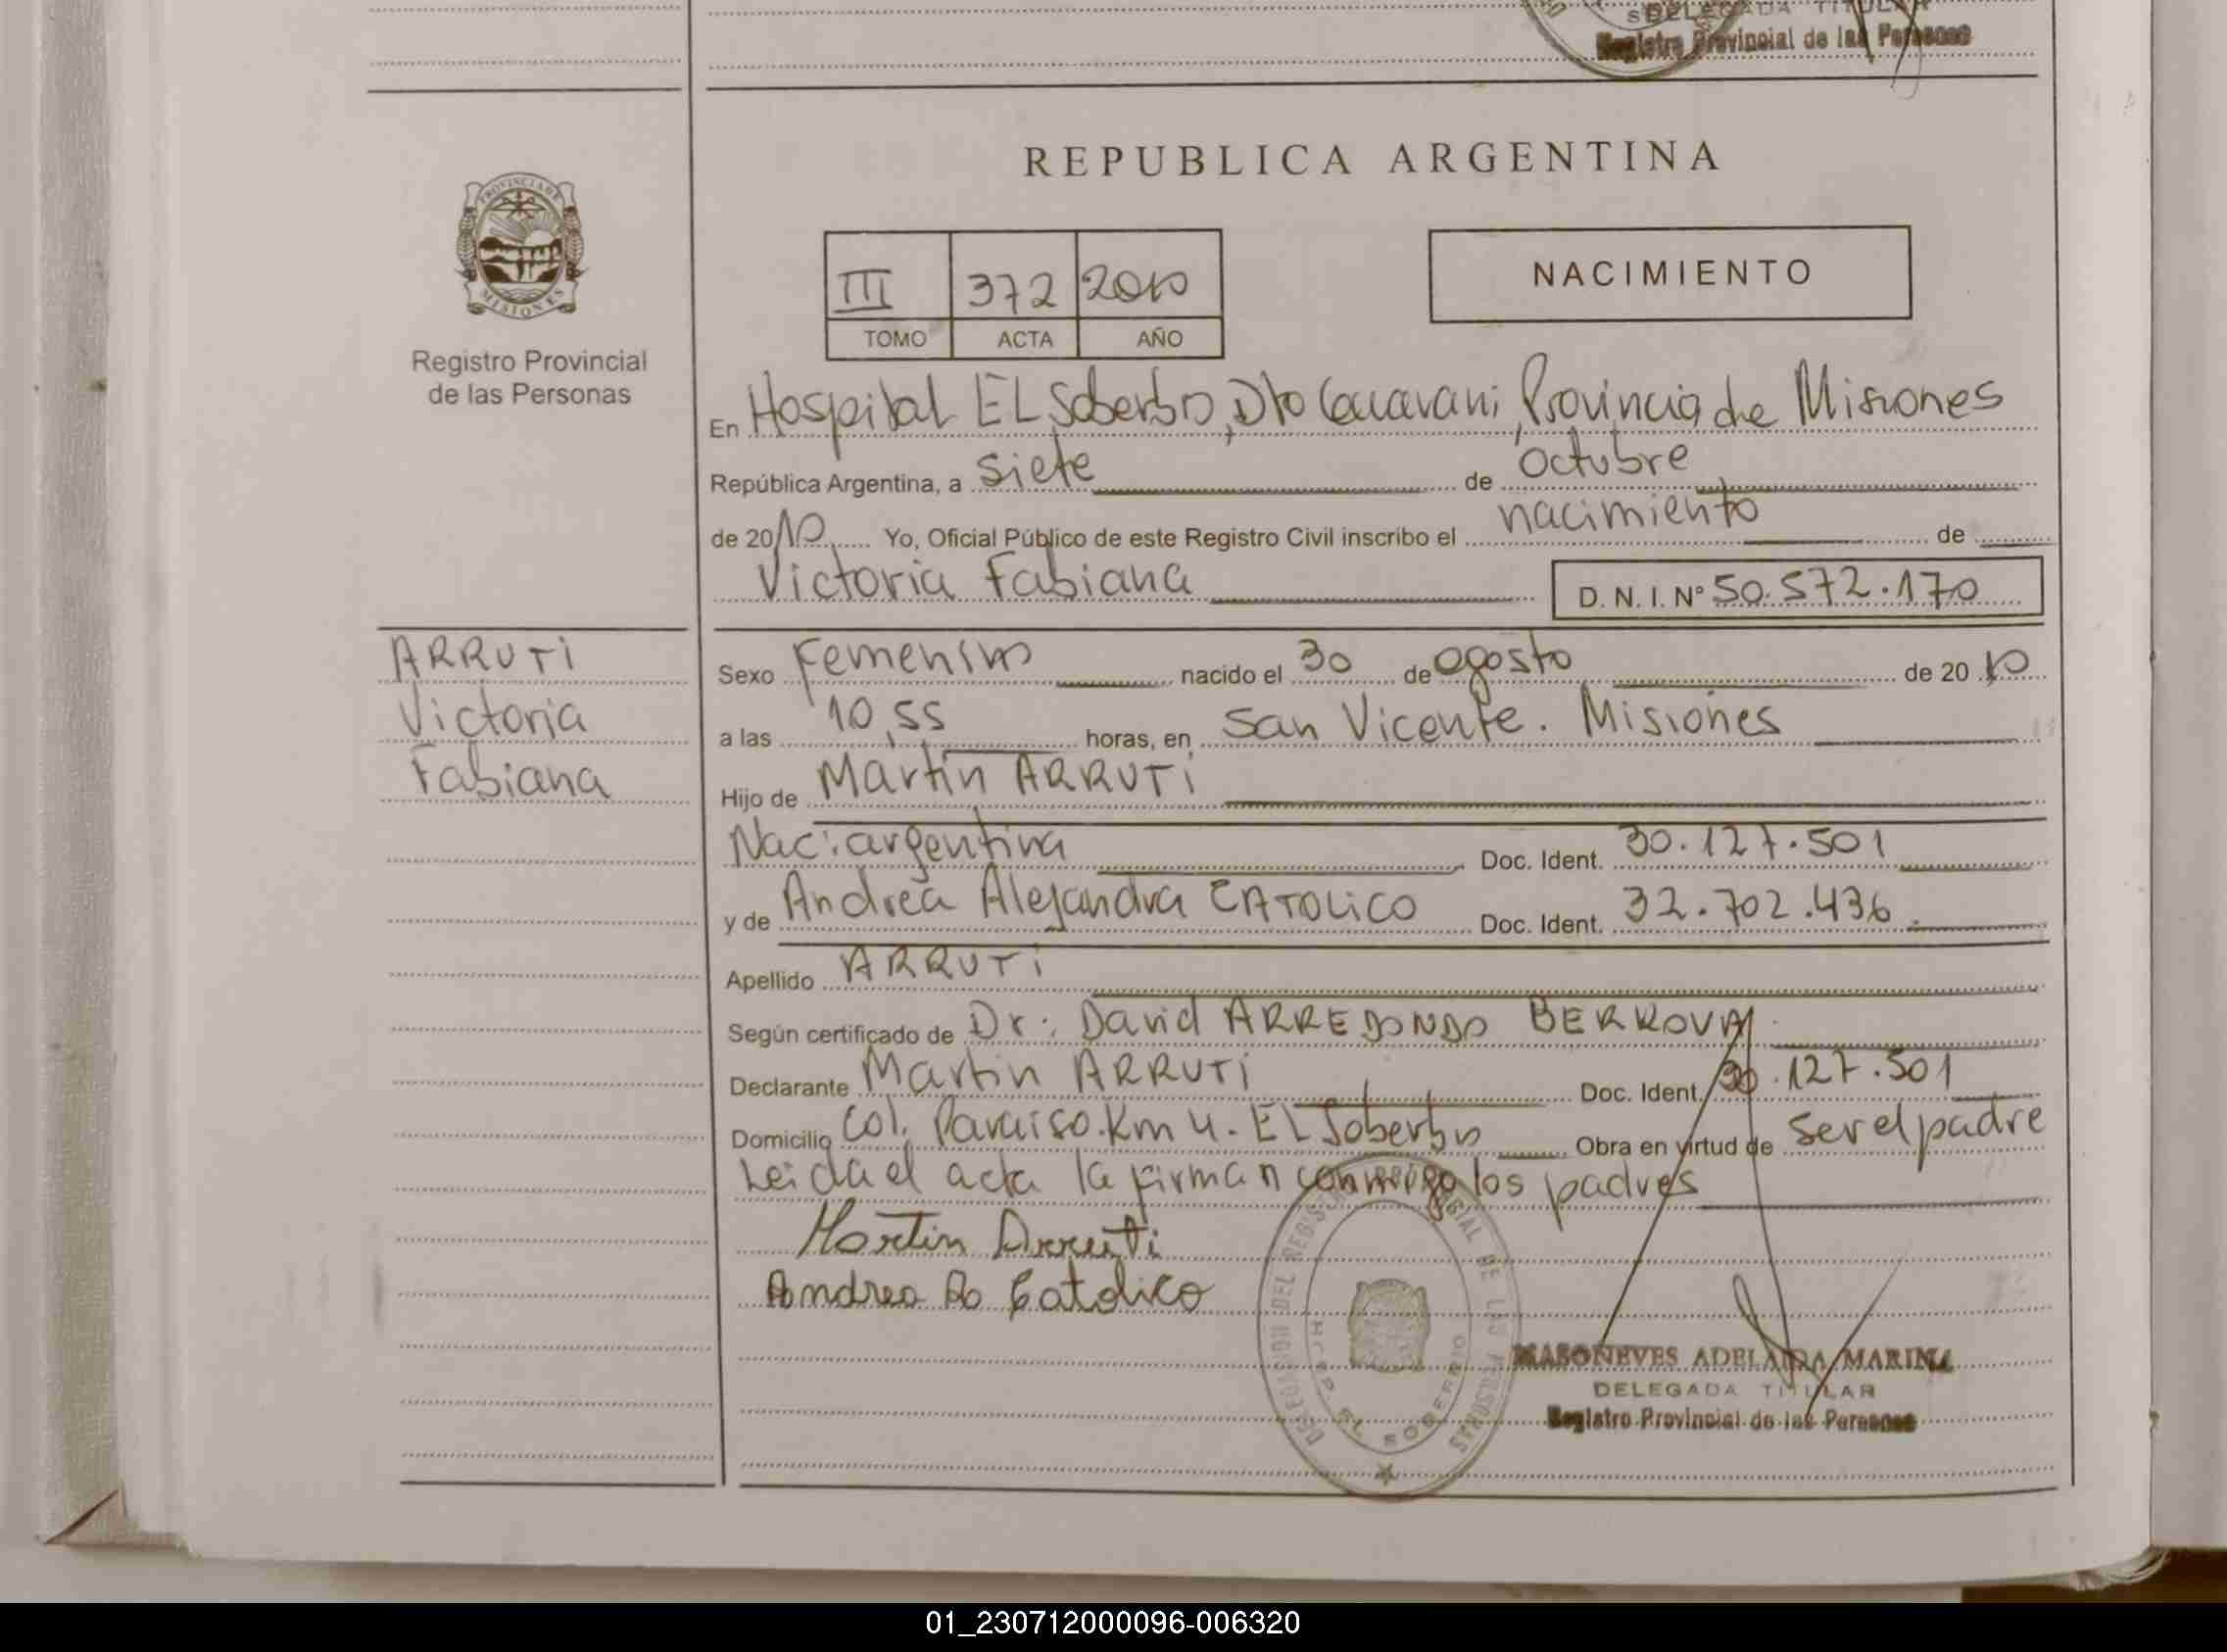 DELEGADA TITULAR
Registro Provincial de las Personas
PROVINCIA DE
MISIONES
Registro Provincial
de las Personas
REPUBLICA ARGENTINA
III 372 2010
TOMO ACTA AÑO
NACIMIENTO
En Hospital EL Soberbio, Dto Guarani, Provincia de Misiones
República Argentina, a siete de Octubre
de 2010 Yo, Oficial Público de este Registro Civil inscribo el nacimiento de
Victoria Fabiana D. N. I. Nº 50.572.170
ARRUTi
Victoria
Fabiana
Sexo Femenino nacido el 30 de agosto de 2010
a las 10,55 horas, en San Vicente. Misiones
Hijo de Martin ARRUTi
Nac: argentina Doc. Ident. 30.127.501
y de Andrea Alejandra CATOLiCO Doc. Ident. 32.702.436.
Apellido ARRUTi
Según certificado de Dr: David ARREDONDO
Declarante Martin ARRUTi Doc. Ident. 30.127.501
Domicilio Col. Paraiso. Km 4. EL Soberbio Obra en virtud de ser el padre
Leida el acta la firman conmigo los padres
Martin Arruti
Andrea A. Catolico
DELEGACION DEL REGISTRO PROVINCIAL DE LAS PERSONAS
EL SOBERBIO
MASONEVES ADELAIDA MARINA
DELEGADA TITULAR
Registro Provincial de las Personas
01_230712000096-006320